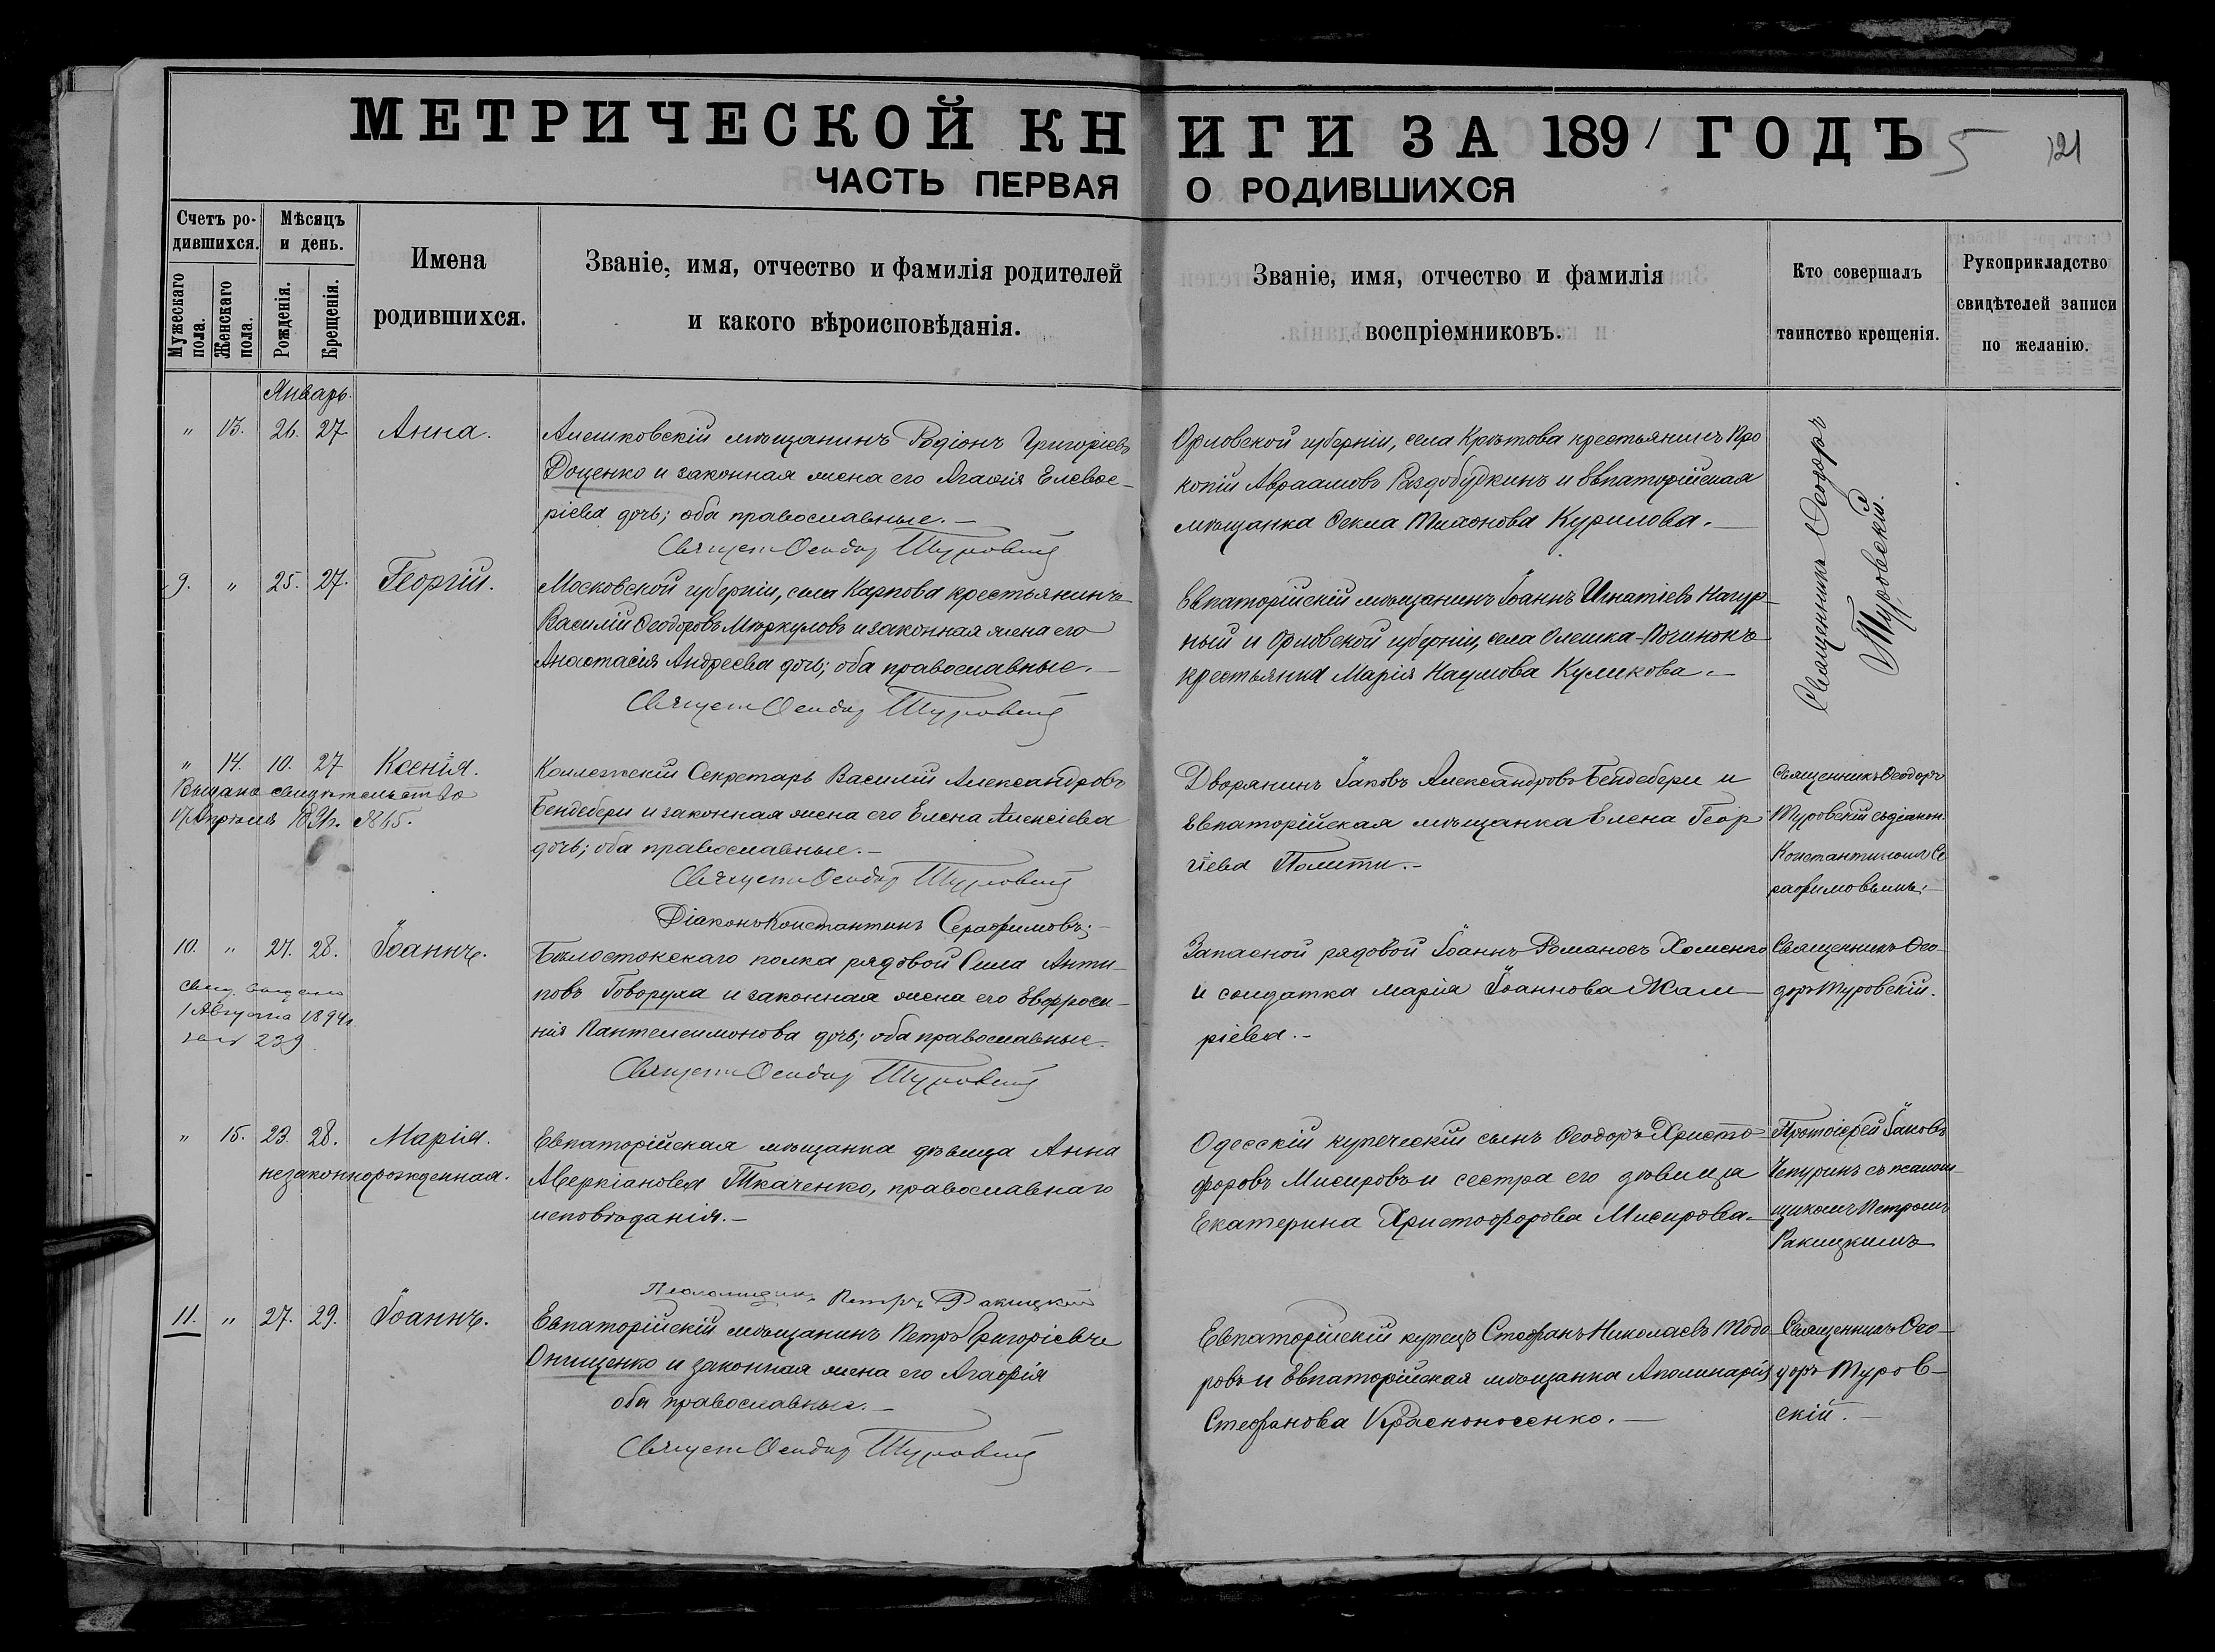 МЕТРИЧЕСКОЙ КНИГИ ЗА 1891 ГОДЪ
5 121
ЧАСТЬ ПЕРВАЯ О РОДИВШИХСЯ
Счетъ родившихся.
Мужескаго пола.
Женскаго пола.
Мѣсяцъ и день.
Рожденія.
Крещенія.
Имена родившихся.
Званіе, имя, отчество и фамилія родителей
и какого вѣроисповѣданія.
Званіе, имя, отчество и фамилія
воспріемниковъ.
Кто совершалъ
таинство крещенія.
Рукоприкладство
свидѣтелей записи
по желанію.
Январь.
" 13. 26. 27. Анна.
Алешковскій мѣщанинъ Родіонъ Григоріевъ
Доценко и законная жена его Агаѳія Елевѳе-
ріева дочь; оба православные.-
Священ Ѳеодор Туровскій
Орловской губерніи, села Крѣтова крестьянинъ Про
копій Авраамовъ Раздобудкинъ и евпаторійская
мѣщанка Ѳекла Тихонова Курилова.-
Священникъ Ѳеодоръ
Туровскій.
9. " 25. 27. Георгій.
Московской губерніи, села Карпова крестьянинъ
Василій Ѳеодоровъ Меркуловъ и законная жена его
Анастасія Андреева дочь; оба православные.-
Священ Ѳеодор Туровскій
Евпаторійскій мѣщанинъ Іоаннъ Игнатіевъ Нагур-
ный и Орловской губерніи, села Олешка-Починокъ
крестьянка Марія Наумова Куликова.-
" 14. 10. 27 Ксенія.
Выдано свидѣтельство
17 Апрѣля №15.
Коллежскій Секретарь Василій Александровъ
Бендебери и законная жена его Елена Алексіева
дочь; оба православные.-
Священ Ѳеодор Туровскій
Діаконъ Константинъ Серафимовъ;-
Дворянинъ Іаковъ Александровъ Бендебери и
Евпаторійская мѣщанка Елена Геор-
гіева Полити.-
Священникъ Ѳеодоръ
Туровскій съ діакон.
Константиномъ Се
рафимовымъ.-
10. " 27. 28. Іоаннъ.
1 Августа 1894
239
Бѣлостокскаго полка рядовой Сила Анти-
повъ Говоруха и законная жена его Евфроси-
нія Пантелеимонова дочь; оба православные.
Священ Ѳеодор Туровскій
Запасной рядовой Іоаннъ Романовъ Хоменко
и солдатка Марія Іоаннова Жал-
ріева.-
Священникъ Ѳео-
доръ Туровскій.
" 15. 23. 28. Марія.
незаконнорожденная.
Евпаторійская мѣщанка дѣвица Анна
Аверкіановна Ткаченко, православнаго
исповѣданія.-
Псаломщикъ Петръ Ракицкій
Одесскій купеческій сынъ Ѳеодоръ Христо-
форовъ Мисировъ и сестра его дѣвица
Екатерина Христофорова Мисирова.-
Протоіерей Іаковъ
Чепуринъ съ псалом-
щикомъ Петромъ
Ракицкимъ
11. " 27. 29. Іоаннъ.
Евпаторійскій мѣщанинъ Петръ Григорієвъ
Онищенко и законная жена его Агафія
оба православные.-
Священ Ѳеодор Туровскій
Евпаторійскій купецъ Стефанъ Николаевъ Тодо-
ровъ и Евпаторійская мѣщанка Аполинарія
Стефанова Красноносенко.-
Священникъ Ѳео-
доръ Туров-
скій.